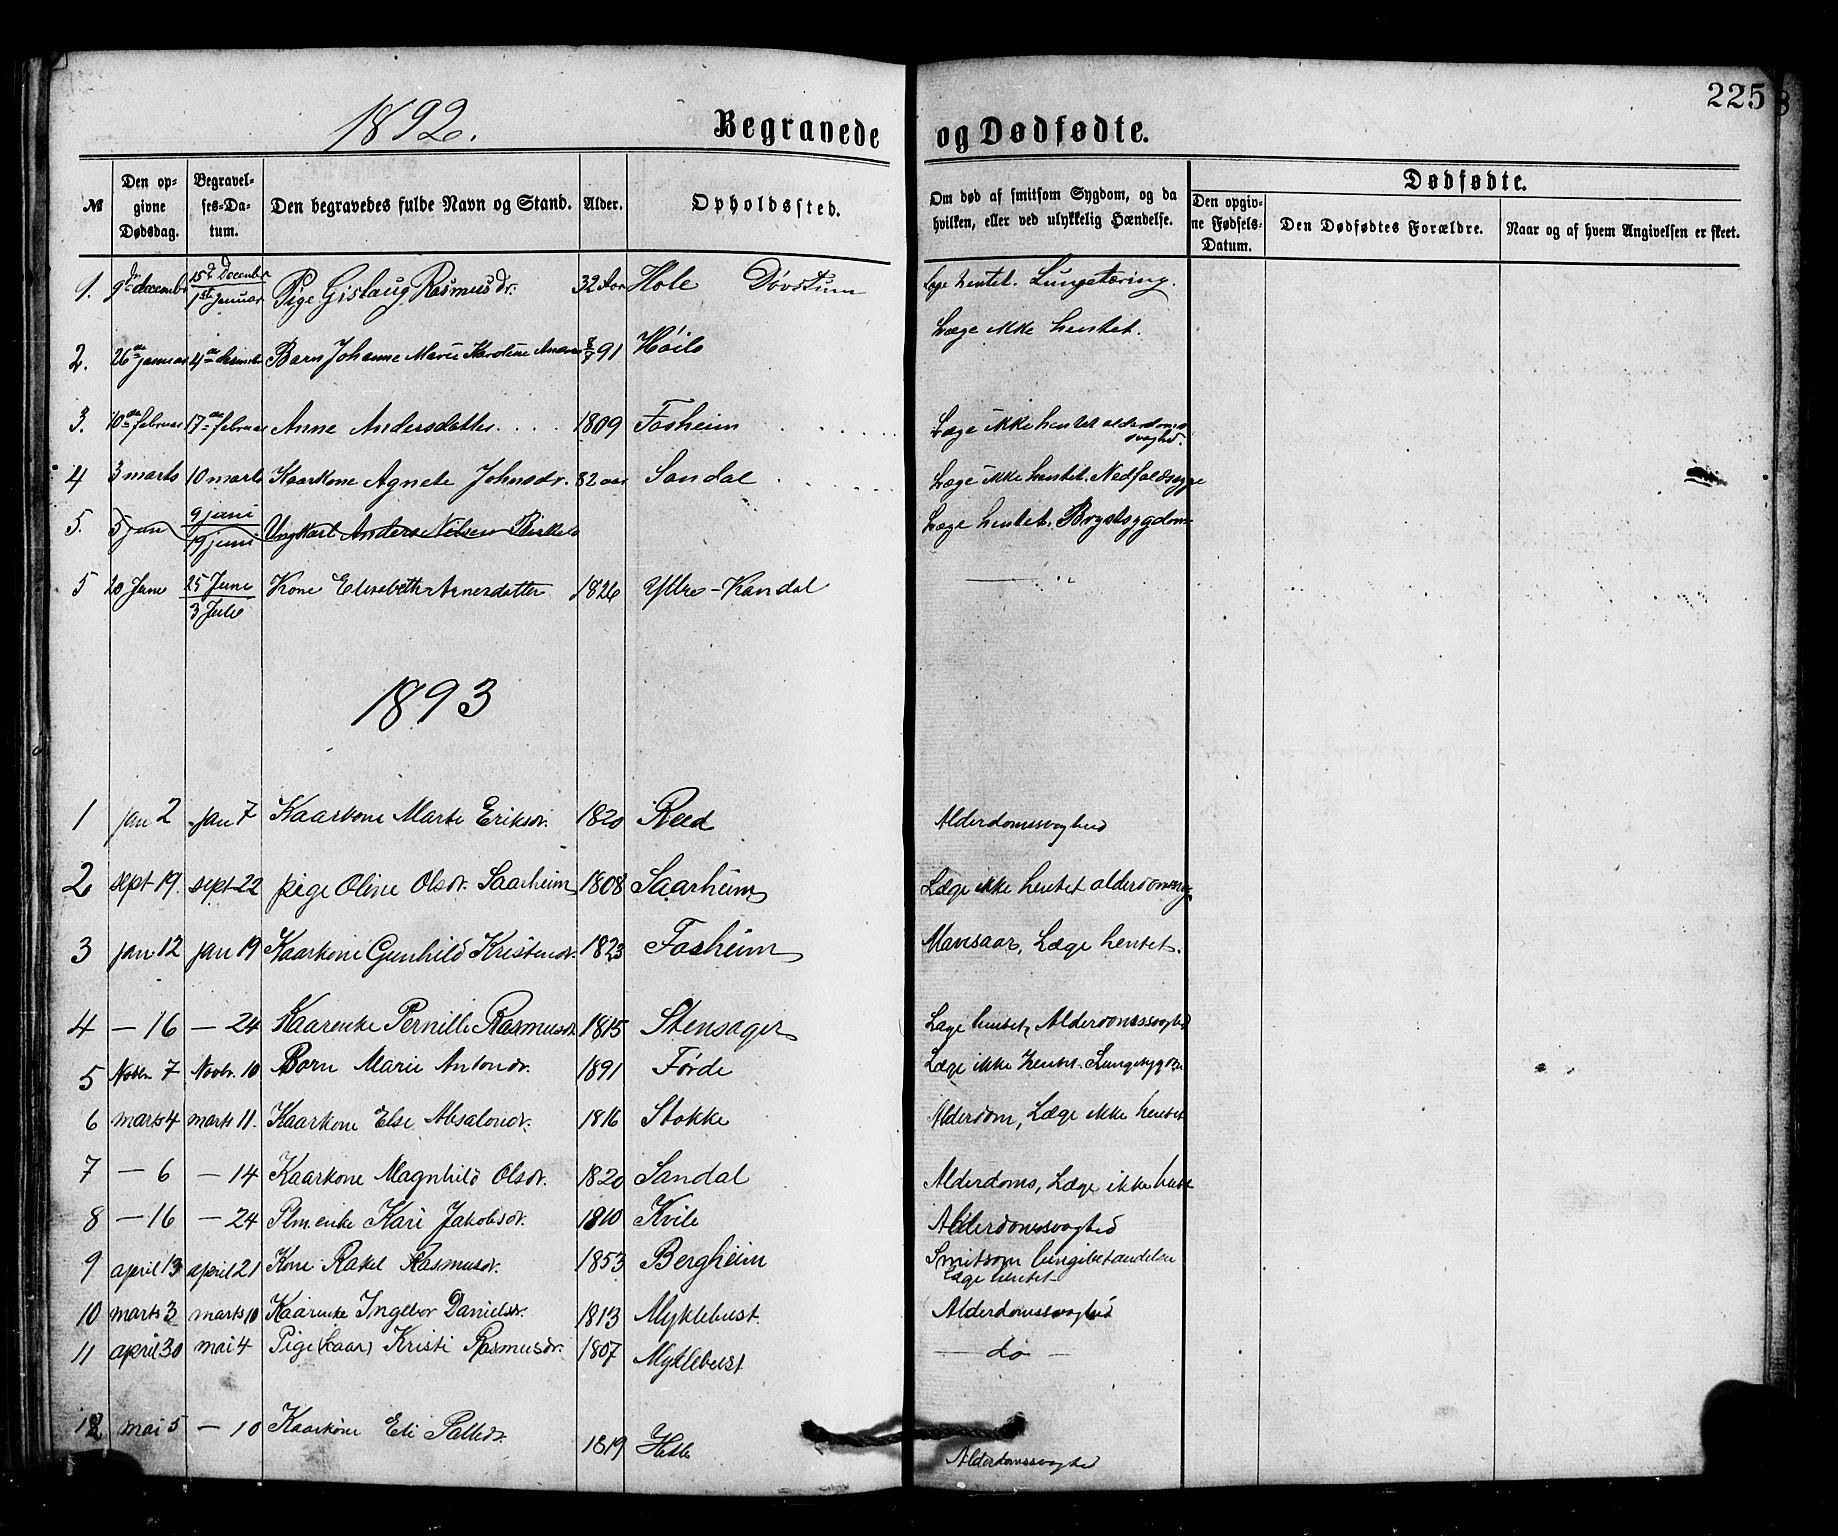 225
1892.
Begravede og Dødfødte.
№
Den opgivne Dødsdag.
Begravelses-Datum.
Den begravedes fulde Navn og Stand.
Alder.
Opholdssted.
Om død af smitsom Sygdom, og da hvilken, eller ved ulykkelig Hændelse.
Dødfødte.
Den opgivne Fødsels-Datum.
Den Dødfødtes Forældre.
Naar og af hvem Angivelsen er skeet.
1. 9de december 15de December 1ste Januar Pige Gislaug Rasmusdr. 32 Aar Hole Døvstum Læge hentet. Lungetæring.
2. 26de januar 4de Barn Johanne Marie Karoline 8/7 91 Høilo Læge ikke hentet.
3. 10de februar 17de februar Anne Andersdatter 1809 Fosheim Læge ikke hentet alderdomssvaghed.
4 3 marts 10 marts Kaarkone Agnete Johnsdr. 82 aar Sandal Læge ikke hentet. Nedfaldssyge
5. 5 juni 9 juni 19 juni Ungkarl Anders Nilsen Læge hentet. Brystsygdom
5 20 June 25 June 3 Julie Kone Elisabeth Arnesdatter 1826 Yttre-Kandal — "
1893
1 jan 2 jan 7 Kaarkone Marte Eriksdr. 1820 Reed Alderdomssvaghed
2 sept 19. sept 22 pige Oline Olsdr. Saarheim 1808 Saarheim Læge ikke hentet
3 jan 12 jan 19 Kaarkone Gunhild Kristensdr. 1823 Fosheim Læge hentet.
4 — 16 — 24 Kaarenke Pernille Rasmusdr. 1815 Stensager Læge hentet, Alderdomssvaghed
5 Novbr. 7 Novbr. 10 Barn Marie Antondr. 1891 Førde Læge ikke hentet. Lungesygdom
6 marts 4 marts 11. Kaarkone Else Absalondr. 1816 Stokke Alderdom, Læge ikke hentet
7 — 6 — 14 Kaarkone Magnhild Olsdr. 1820 Sandal Alderdoms, Læge ikke hentet
8 — 16 — 24 Plm. enke Kari Jakobsdr. 1810 Kvile Alderdomssvaghed
9 april 13 april 21 Kone Rakel Rasmusdr. 1853 Bergheim Smitsom lungebetændelse Læge hentet
10 marts 3 marts 10 Kaarenke Ingebor Danielsdr. 1813 Myklebust. Alderdomssvaghed
11 april 30 mai 4 Pige (Kaar) Kristi Rasmusdr. 1807 Myklebust — do —
12 mai 5 — 10 Kaarkone Eli Pallesdr. 1819 Hetle Alderdomssvaghed